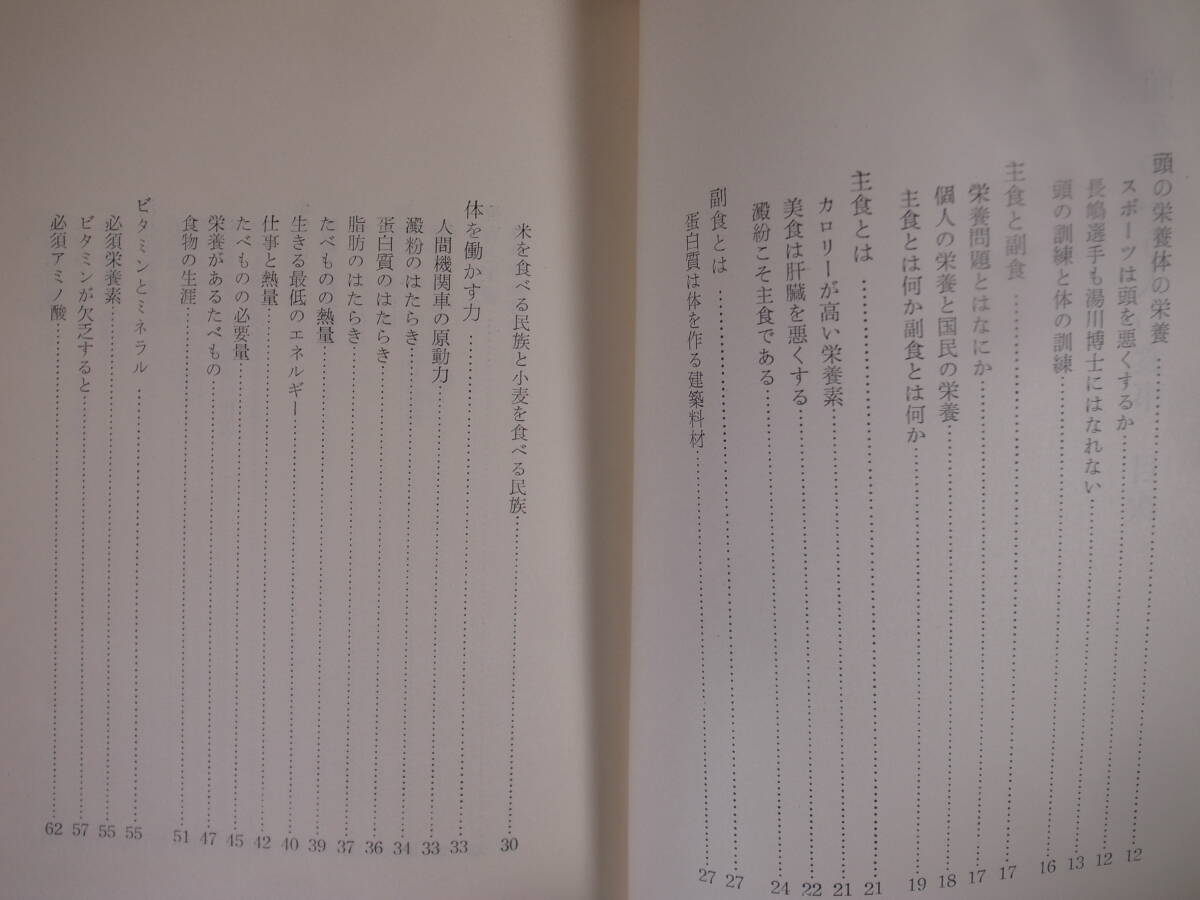 頭の栄養体の栄養……12
スポーツは頭を悪くするか……12
長嶋選手も湯川博士にはなれない……13
頭の訓練と体の訓練……16
主食と副食……17
栄養問題とはなにか……17
個人の栄養と国民の栄養……18
主食とは何か副食とは何か……19
主食とは……21
カロリーが高い栄養素……21
美食は肝臓を悪くする……22
澱粉こそ主食である……24
副食とは……27
蛋白質は体を作る建築料材……27
米を食べる民族と小麦を食べる民族……30
体を働かす力……33
人間機関車の原動力……33
澱粉のはたらき……34
蛋白質のはたらき……36
脂肪のはたらき……37
たべものの熱量……39
生きる最低のエネルギー……40
仕事と熱量……42
たべものの必要量……45
栄養があるたべもの……47
食物の生涯……51
ビタミンとミネラル……55
必須栄養素……55
ビタミンが欠乏すると……57
必須アミノ酸……62